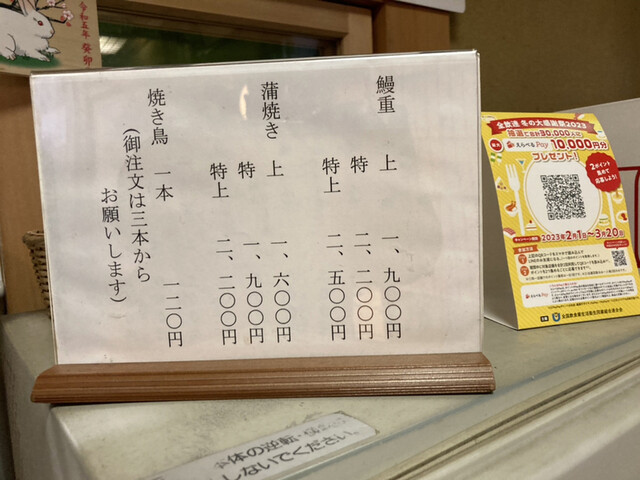 令和五年 癸卯
鰻重 上 一、九〇〇円
特 二、二〇〇円
特上 二、五〇〇円
蒲焼き 上 一、六〇〇円
特 一、九〇〇円
特上 二、二〇〇円
焼き鳥 一本 一二〇円
(御注文は三本から
お願いします)
全飲連 冬の大感謝祭2023
抽選で合計30,000人に!
えらべるPay 10,000円分
プレゼント!
2ポイント
集めて
応募しよう!
2023年2月1日~3月20日
えらべるPay
全国飲食業生活衛生同業組合連合会
体の逆転・
しないでください